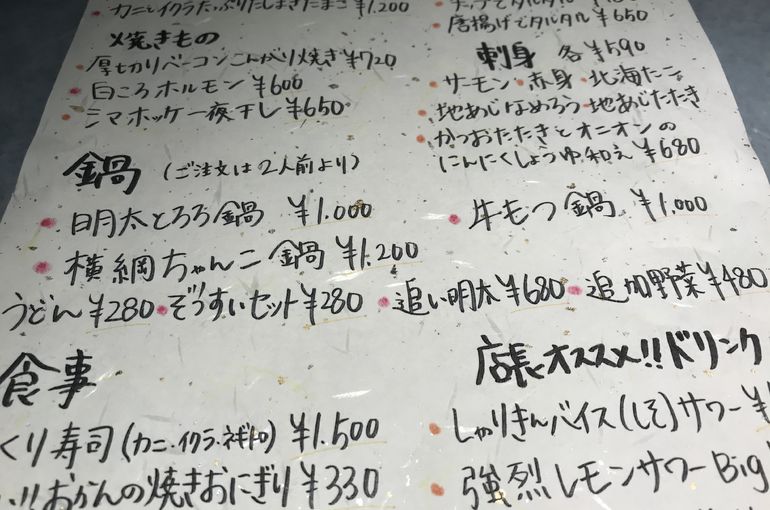 カニとイクラたっぷりだしまきたまご ¥1,200
焼きもの
厚切りベーコンこんがり焼き ¥720
白ころホルモン ¥600
シマホッケ一夜干し ¥650
唐揚げでタルタル ¥650
刺身 各¥590
サーモン・赤身・北海たこ
地あじなめろう 地あじたたき
かつおたたきとオニオンの
にんにくしょうゆ和え ¥680
鍋 (ご注文は2人前より)
明太とろろ鍋 ¥1.000
牛もつ鍋 ¥1,000
横綱ちゃんこ鍋 ¥1,200
うどん ¥280 ぞうすいセット ¥280
追い明太 ¥680 追加野菜 ¥480
食事
くり寿司 (カニ・イクラ・ネギトロ) ¥1.500
おかんの焼きおにぎり ¥330
店長オススメ!!ドリンク
しゃりきんバイス(しそ)サワー ¥
強烈レモンサワーBig